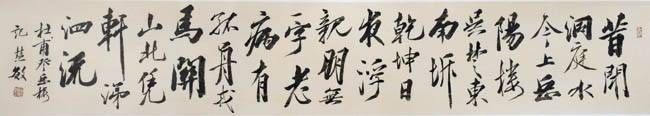 昔聞
洞庭水
今上岳
陽樓
吳楚東
南坼
乾坤日
夜浮
親朋無
一字老
病有
孤舟戎
馬關
山北凭
軒涕
泗流
杜甫登岳樓
記